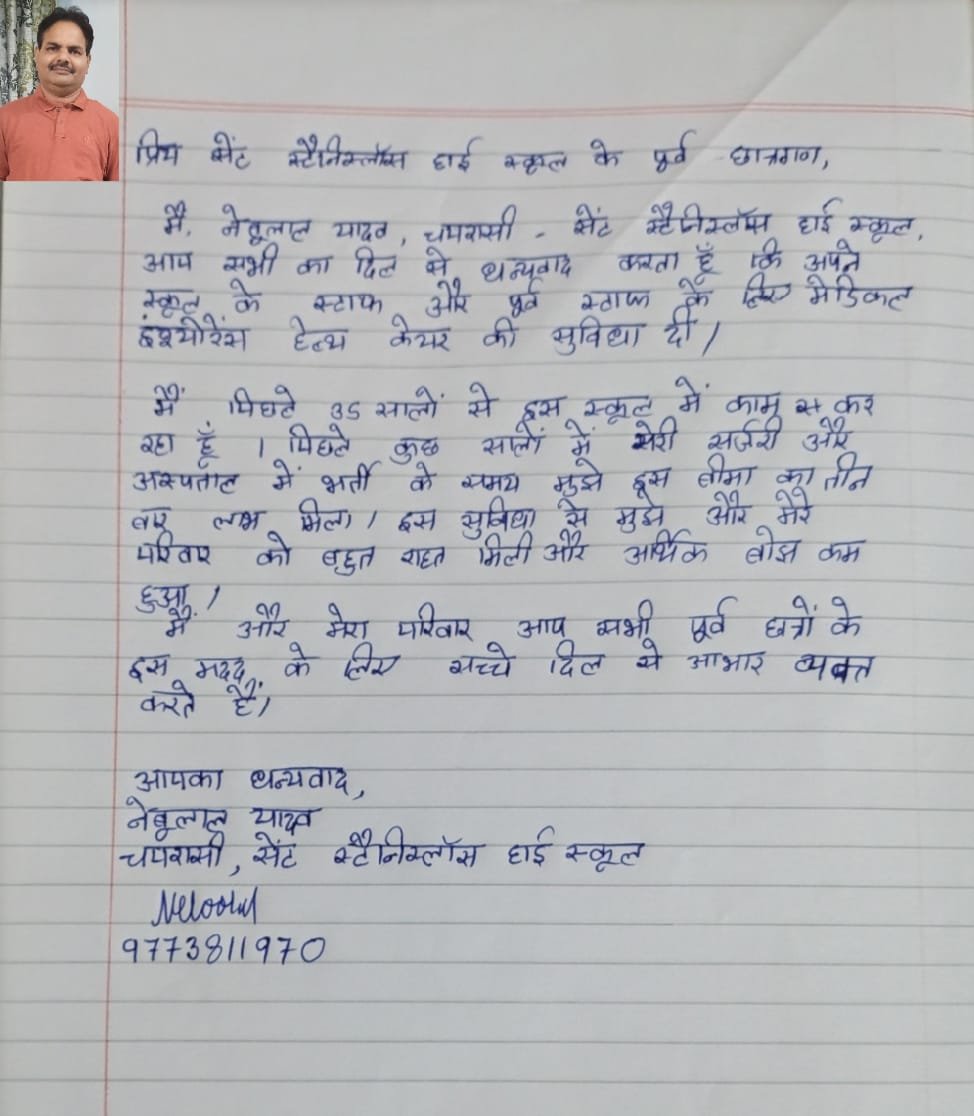 प्रिय सेंट स्टैनिस्लॉस हाई स्कूल के पूर्व छात्रगण,
मैं, नेबूलाल यादव, चपरासी - सेंट स्टैनिस्लॉस हाई स्कूल,
आप सभी का दिल से धन्यवाद करता हूँ कि अपने
स्कूल के स्टाफ और पूर्व स्टाफ के लिए मेडिकल
इंश्योरेंस हेल्थ केयर की सुविधा दी।
मैं पिछले 35 सालों से इस स्कूल में काम कर
रहा हूँ । पिछले कुछ सालों में मेरी सर्जरी और
अस्पताल में भर्ती के समय मुझे इस बीमा का तीन
बार लाभ मिला। इस सुविधा से मुझे और मेरे
परिवार को बहुत राहत मिली और आर्थिक बोझ कम
हुआ।
मैं और मेरा परिवार आप सभी पूर्व छात्रों के
इस मदद के लिए सच्चे दिल से आभार व्यक्त
करते हैं।
आपका धन्यवाद,
नेबूलाल यादव
चपरासी, सेंट स्टैनिस्लॉस हाई स्कूल
9773811970